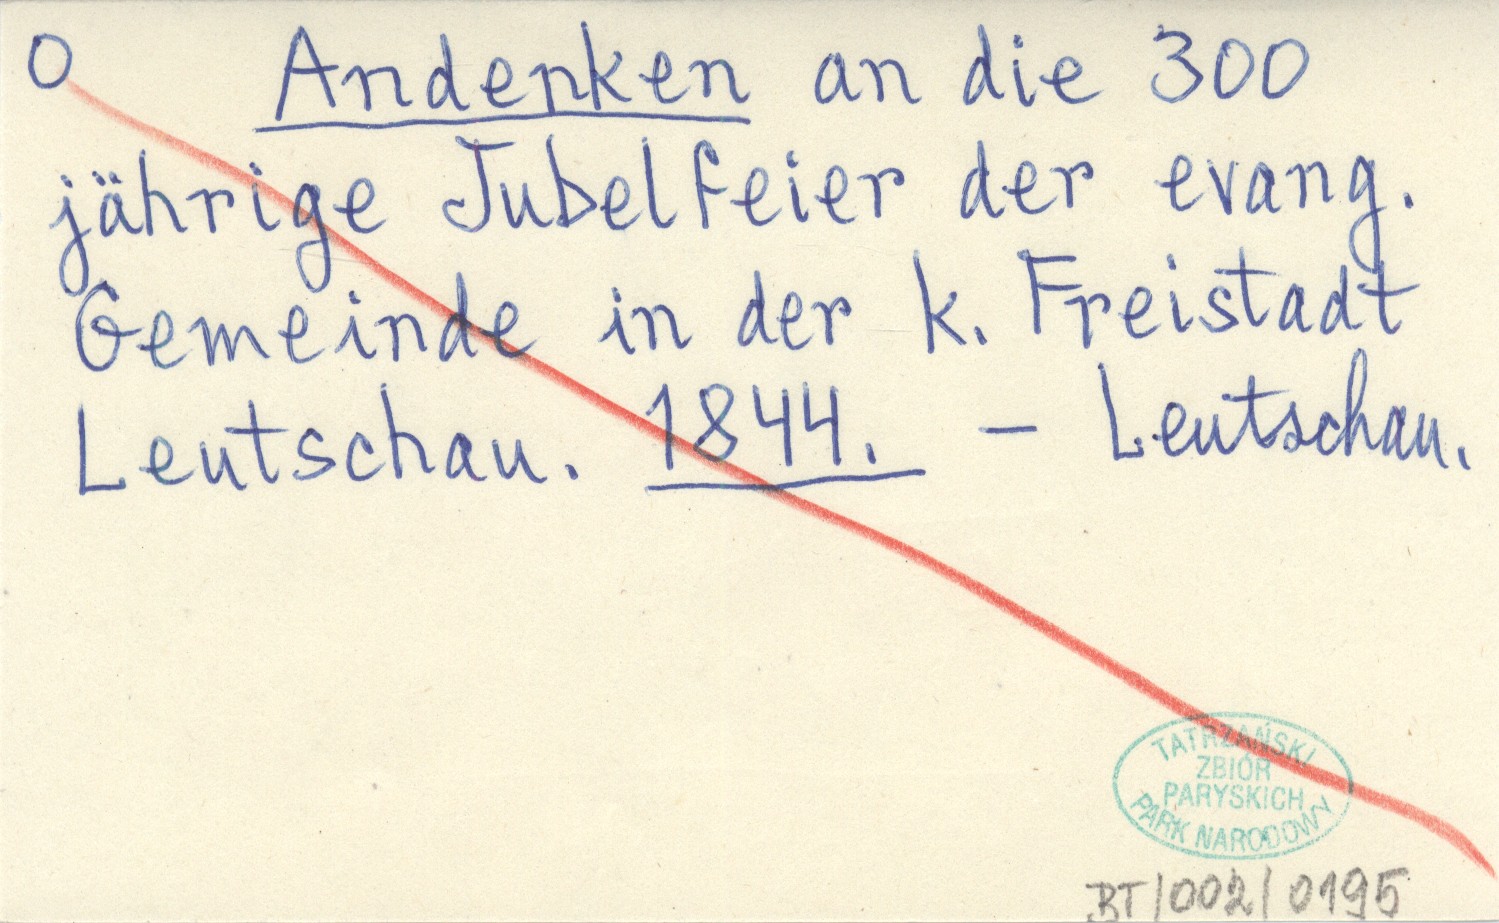 O Andenken an die 300
jährige Jubelfeier der evang.
Gemeinde in der k. Freistadt
Leutschau. 1844. – Leutschau.
TATRZAŃSKI
ZBIÓR
PARYSKICH
PARK NARODOWY
BT/002/0195